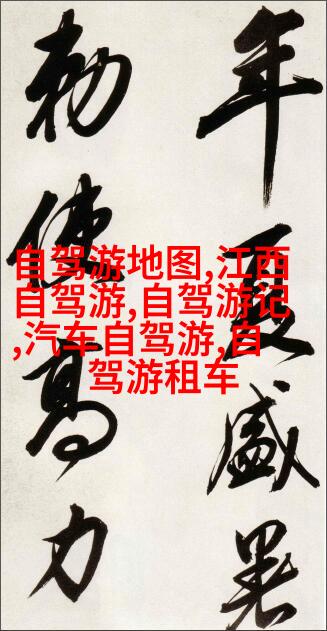 年夏盛暑
勅使高力
自驾游地图,江西
自驾游,自驾游记
,汽车自驾游,自
驾游租车